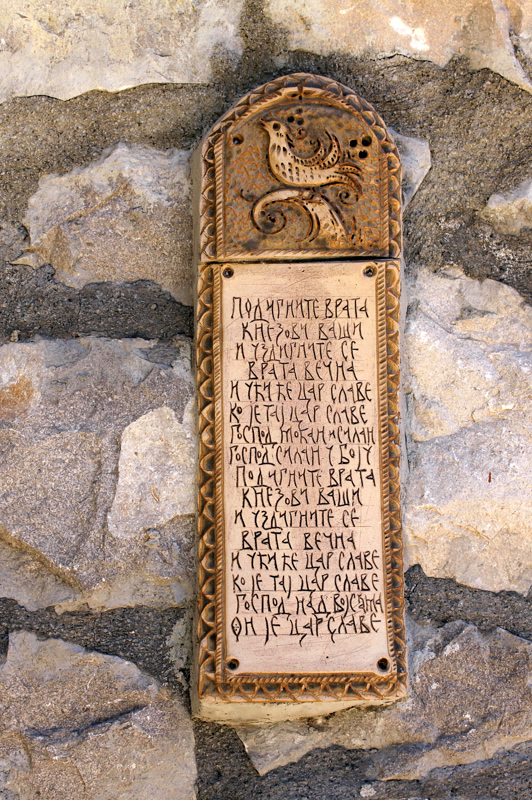 ПОДИГНИТЕ ВРАТА
КНЕЗОВИ ВАШИ
И УЗДИГНИТЕ СЕ
ВРАТА ВЕЧНА
И УЋИ ЋЕ ЦАР СЛАВЕ
КО ЈЕ ТАЈ ЦАР СЛАВЕ
ГОСПОД МОЋАН И СИЛАН
ГОСПОД СИЛАН У БОЈУ
ПОДИГНИТЕ ВРАТА
КНЕЗОВИ ВАШИ
И УЗДИГНИТЕ СЕ
ВРАТА ВЕЧНА
И УЋИ ЋЕ ЦАР СЛАВЕ
КО ЈЕ ТАЈ ЦАР СЛАВЕ
ГОСПОД НАД ВОЈСКАМА
ОН ЈЕ ЦАР СЛАВЕ